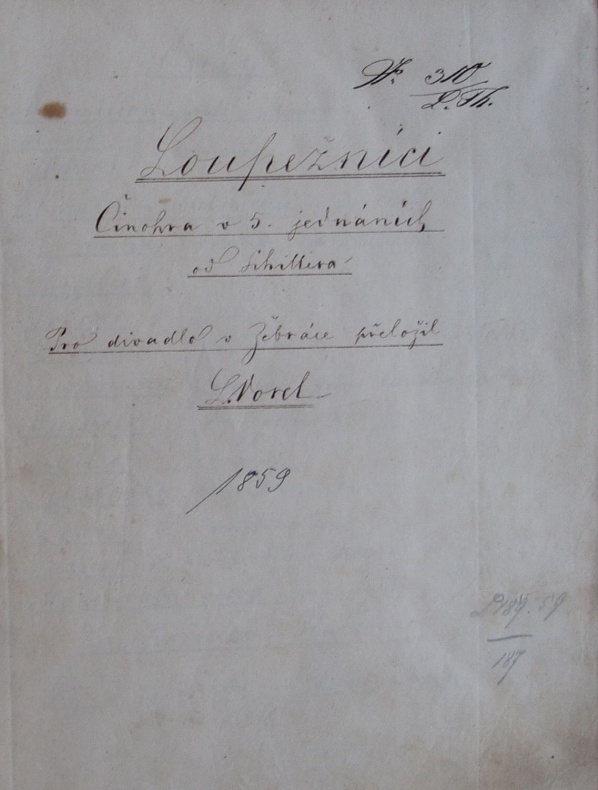 No. 310
L. Th.
Loupežníci
Činohra v 5. jednáních
od Schillera
Pro divadlo v Žebráce přeložil
L. Vorel
1859
187.59
187